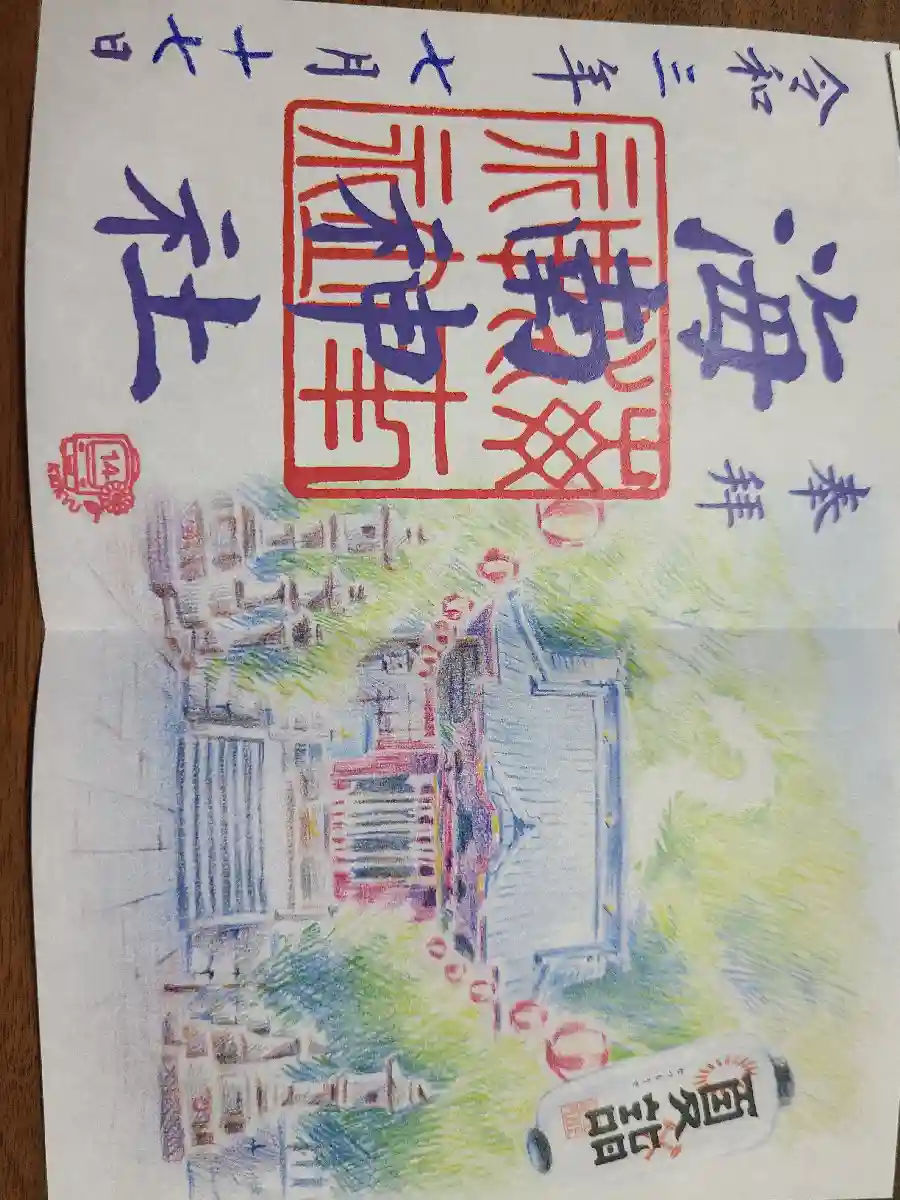 奉拝
海南神社
令和三年七月十七日
14
夏詣